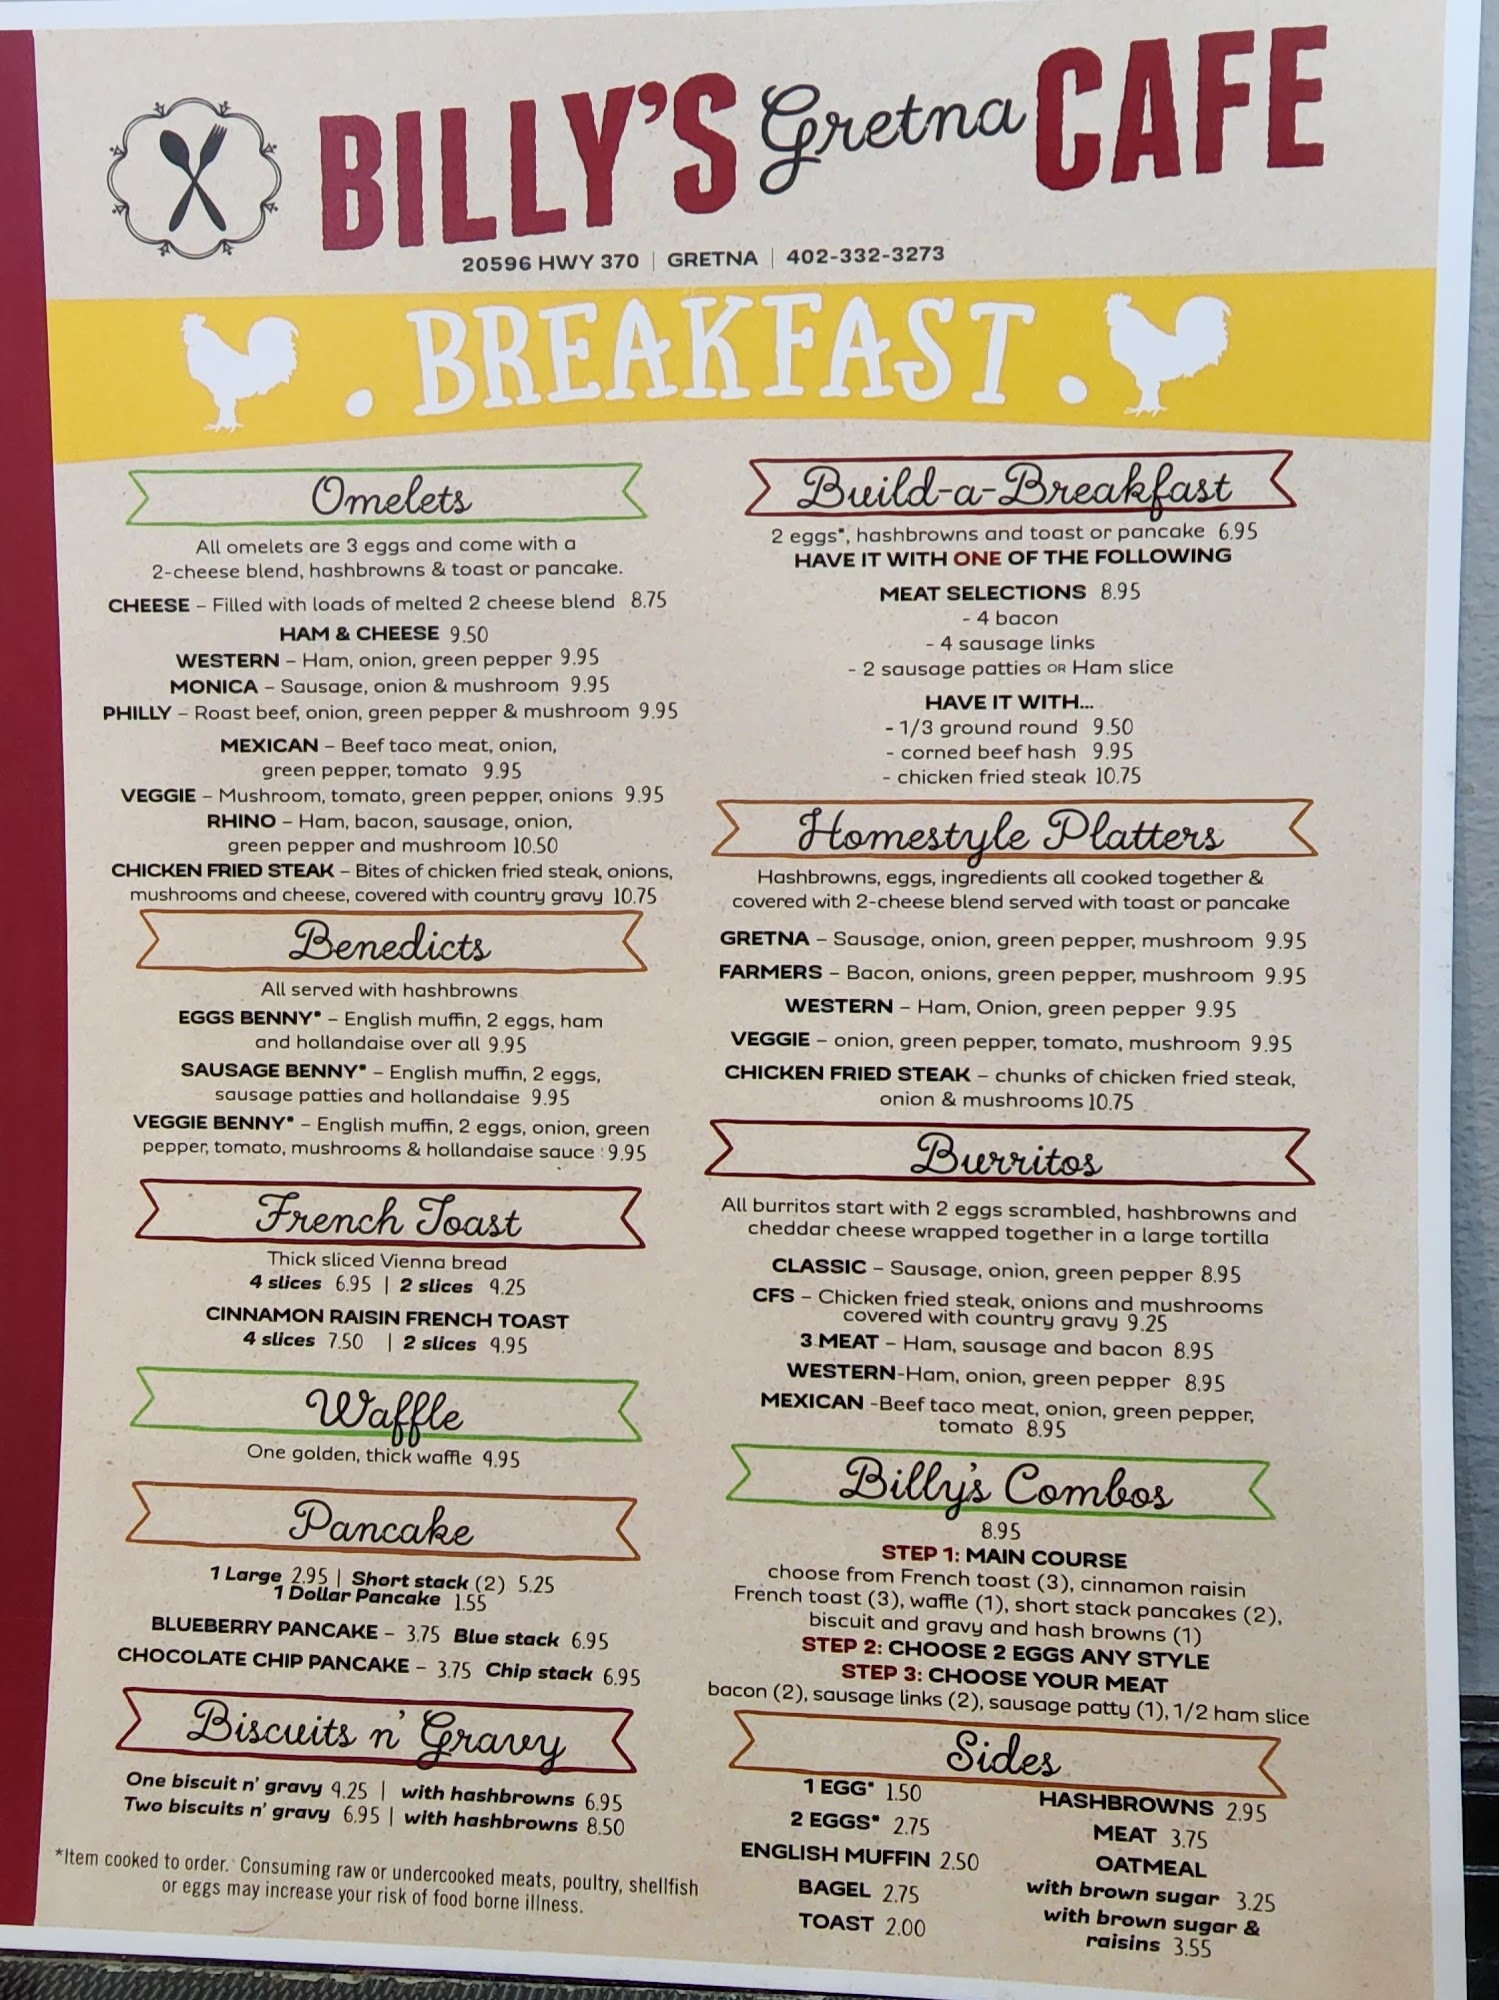 BILLY'S Gretna CAFE
20596 HWY 370 | GRETNA | 402-332-3273
. BREAKFAST .
Omelets
All omelets are 3 eggs and come with a
2-cheese blend, hashbrowns & toast or pancake.
CHEESE – Filled with loads of melted 2 cheese blend 8.75
HAM & CHEESE 9.50
WESTERN – Ham, onion, green pepper 9.95
MONICA – Sausage, onion & mushroom 9.95
PHILLY – Roast beef, onion, green pepper & mushroom 9.95
MEXICAN – Beef taco meat, onion,
green pepper, tomato 9.95
VEGGIE – Mushroom, tomato, green pepper, onions 9.95
RHINO – Ham, bacon, sausage, onion,
green pepper and mushroom 10.50
CHICKEN FRIED STEAK – Bites of chicken fried steak, onions,
mushrooms and cheese, covered with country gravy 10.75
Benedicts
All served with hashbrowns
EGGS BENNY* – English muffin, 2 eggs, ham
and hollandaise over all 9.95
SAUSAGE BENNY* – English muffin, 2 eggs,
sausage patties and hollandaise 9.95
VEGGIE BENNY* – English muffin, 2 eggs, onion, green
pepper, tomato, mushrooms & hollandaise sauce 9.95
French Toast
Thick sliced Vienna bread
4 slices 6.95 | 2 slices 4.25
CINNAMON RAISIN FRENCH TOAST
4 slices 7.50 | 2 slices 4.95
Waffle
One golden, thick waffle 4.95
Pancake
1 Large 2.95 | Short stack (2) 5.25
1 Dollar Pancake 1.55
BLUEBERRY PANCAKE – 3.75 Blue stack 6.95
CHOCOLATE CHIP PANCAKE – 3.75 Chip stack 6.95
Biscuits n' Gravy
One biscuit n' gravy 4.25 | with hashbrowns 6.95
Two biscuits n' gravy 6.95 | with hashbrowns 8.50
*Item cooked to order. Consuming raw or undercooked meats, poultry, shellfish
or eggs may increase your risk of food borne illness.
Build-a-Breakfast
2 eggs*, hashbrowns and toast or pancake 6.95
HAVE IT WITH ONE OF THE FOLLOWING
MEAT SELECTIONS 8.95
- 4 bacon
- 4 sausage links
- 2 sausage patties OR Ham slice
HAVE IT WITH...
- 1/3 ground round 9.50
- corned beef hash 9.95
- chicken fried steak 10.75
Homestyle Platters
Hashbrowns, eggs, ingredients all cooked together &
covered with 2-cheese blend served with toast or pancake
GRETNA – Sausage, onion, green pepper, mushroom 9.95
FARMERS – Bacon, onions, green pepper, mushroom 9.95
WESTERN – Ham, Onion, green pepper 9.95
VEGGIE – onion, green pepper, tomato, mushroom 9.95
CHICKEN FRIED STEAK – chunks of chicken fried steak,
onion & mushrooms 10.75
Burritos
All burritos start with 2 eggs scrambled, hashbrowns and
cheddar cheese wrapped together in a large tortilla
CLASSIC – Sausage, onion, green pepper 8.95
CFS – Chicken fried steak, onions and mushrooms
covered with country gravy 9.25
3 MEAT – Ham, sausage and bacon 8.95
WESTERN-Ham, onion, green pepper 8.95
MEXICAN -Beef taco meat, onion, green pepper,
tomato 8.95
Billy's Combos
8.95
STEP 1: MAIN COURSE
choose from French toast (3), cinnamon raisin
French toast (3), waffle (1), short stack pancakes (2),
biscuit and gravy and hash browns (1)
STEP 2: CHOOSE 2 EGGS ANY STYLE
STEP 3: CHOOSE YOUR MEAT
bacon (2), sausage links (2), sausage patty (1), 1/2 ham slice
Sides
1 EGG* 1.50
2 EGGS* 2.75
ENGLISH MUFFIN 2.50
BAGEL 2.75
TOAST 2.00
HASHBROWNS 2.95
MEAT 3.75
OATMEAL
with brown sugar 3.25
with brown sugar &
raisins 3.55